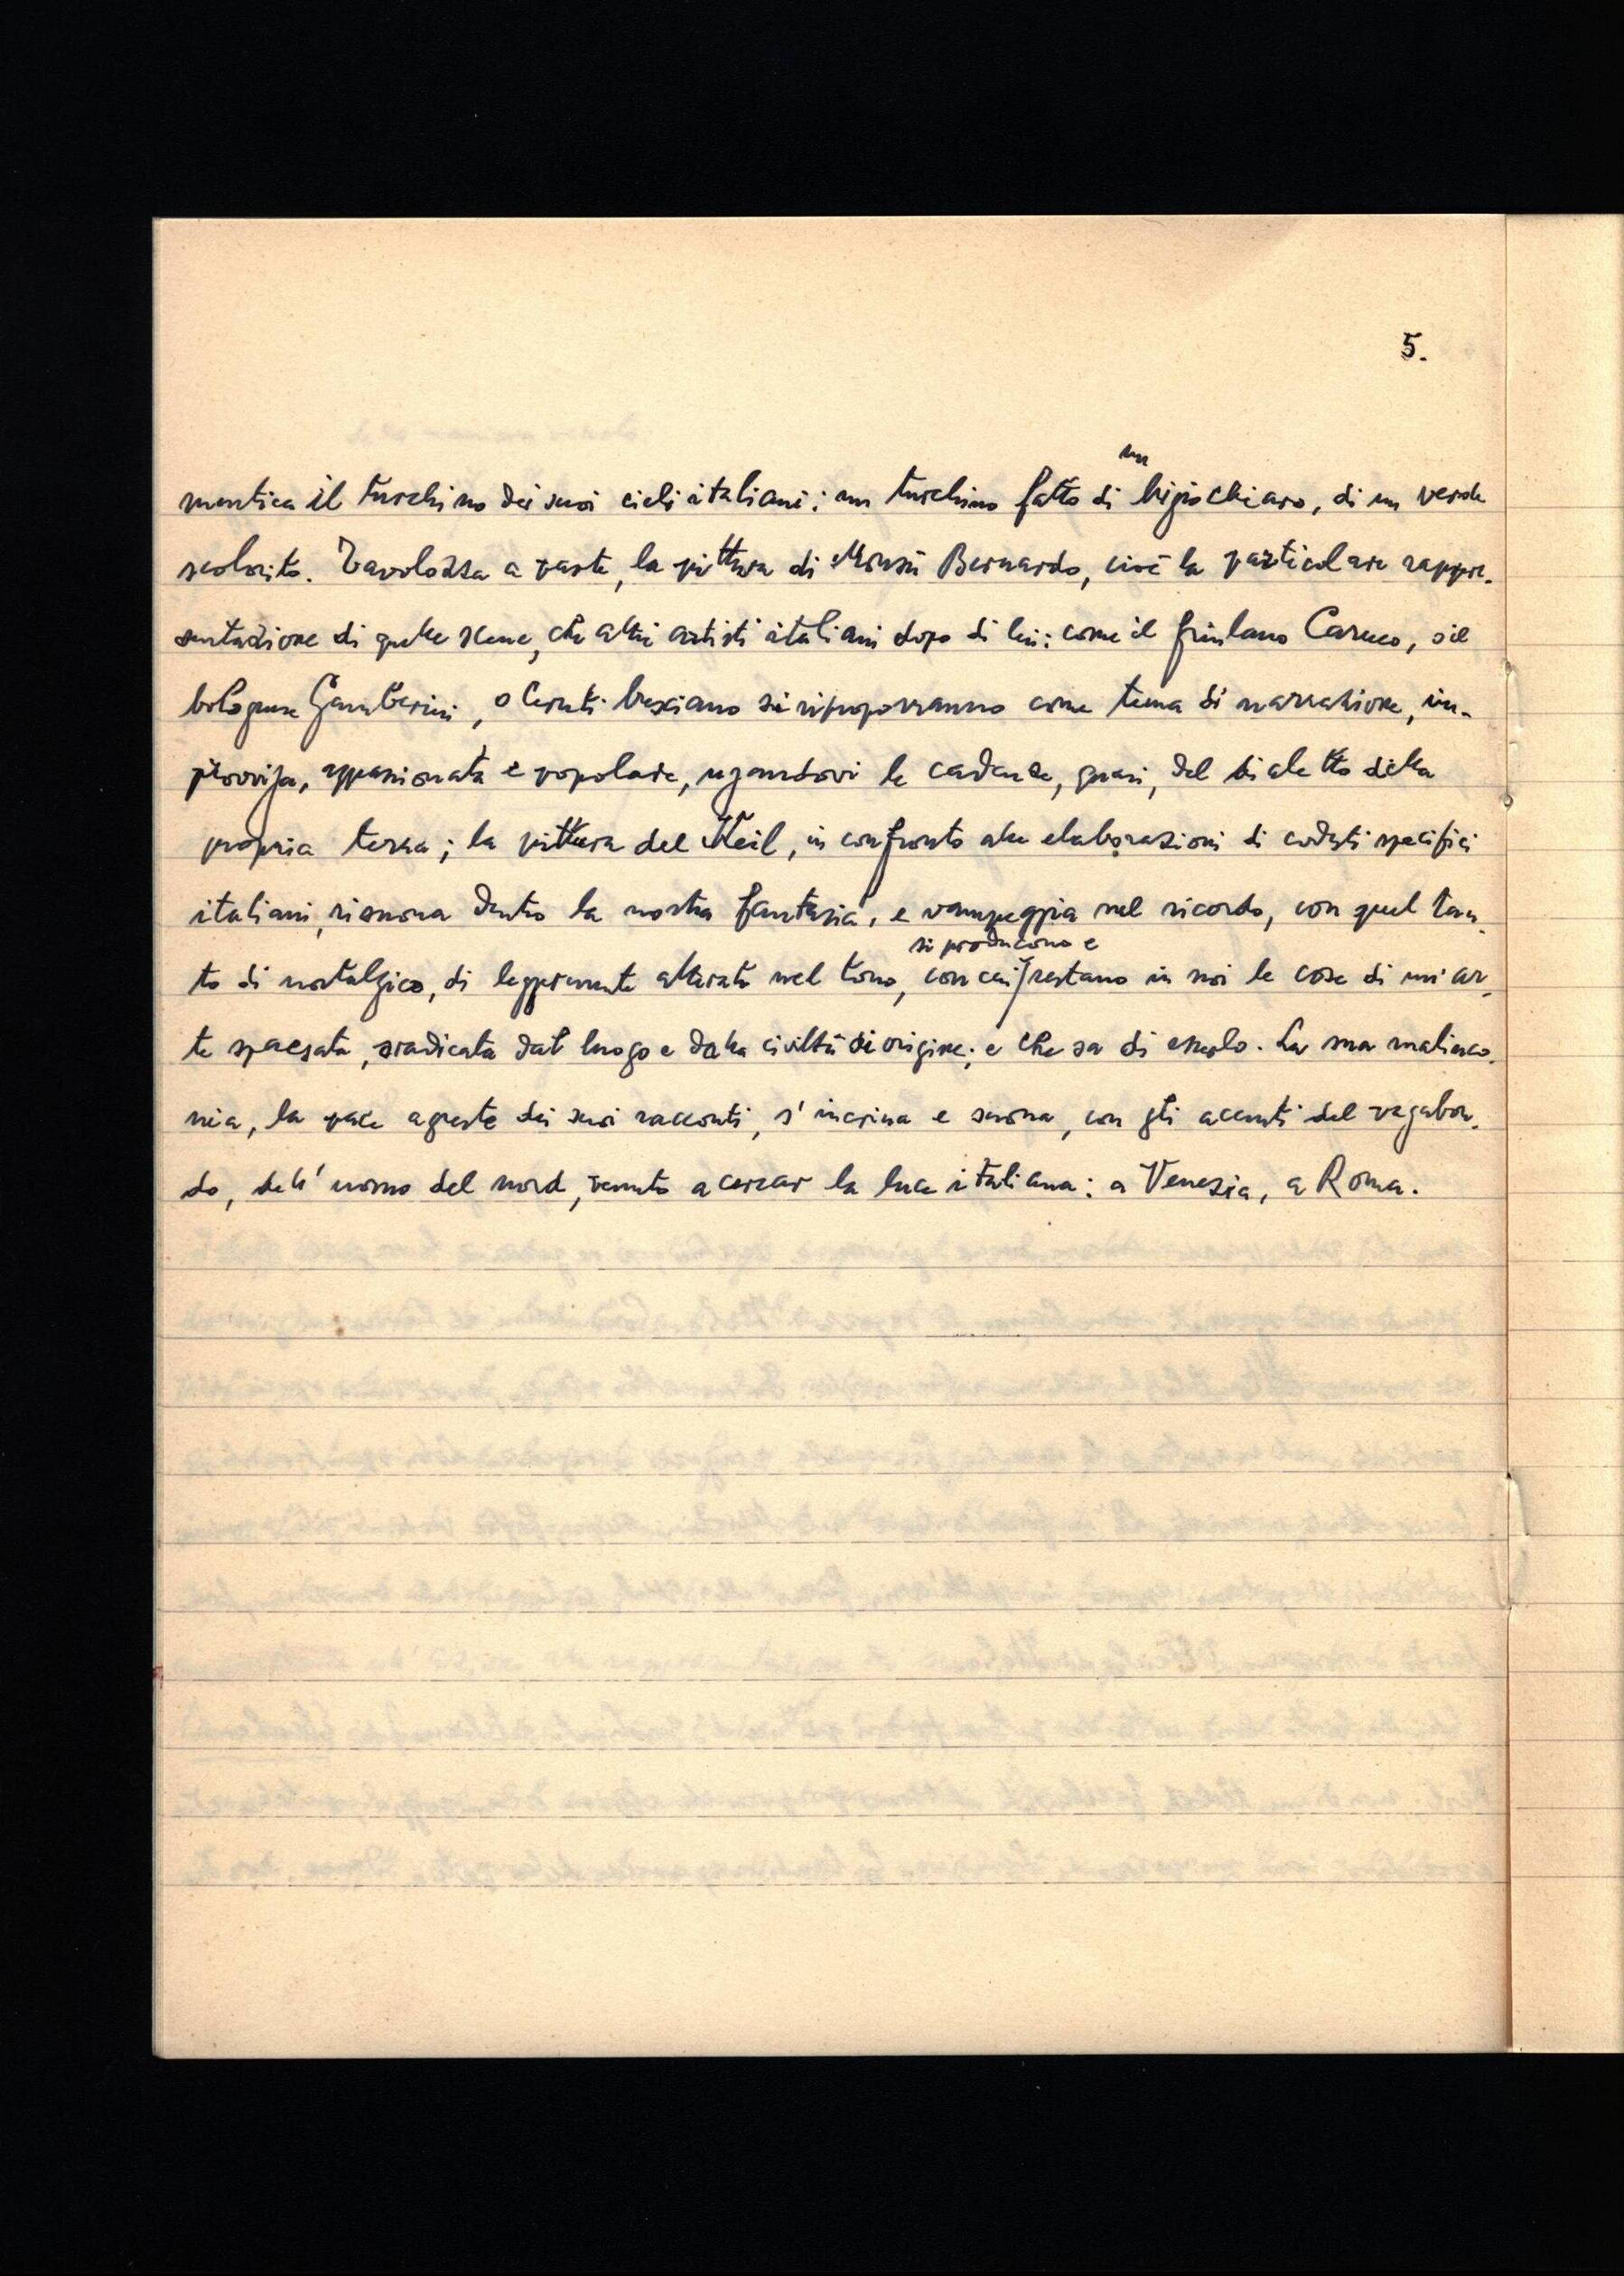 5.
un
mentica il turchino dei suoi cieli italiani: un turchino fatto di bigio chiaro, di un verde
scolorito. Tavolozza a parte, la pittura di Monsù Bernardo, cioè la particolare rappre-
sentazione di quelle scene, che altri artisti italiani dopo di lui: come il friulano Carneo, o il
bolognese Gamberini, o Ceruti bresciano si riproporranno come tema di narrazione, im-
provvisa, appassionata e popolare, usandovi le cadenze, quasi, del dialetto della
propria terra; la pittura del Keil, in confronto alle elaborazioni di codesti specifici
italiani, risuona dentro la nostra fantasia, e vampeggia nel ricordo, con quel tan-
si producono e
to di nostalgico, di leggermente alterato nel tono, con cui restano in noi le cose di un'ar-
te spaesata, sradicata dal luogo e dalla civiltà di origine; e che sa di esilio. La sua malinco-
nia, la pace agreste dei suoi racconti, s'incrina e suona, con gli accenti del vagabon-
do, dell'uomo del nord, venuto a cercar la luce italiana: a Venezia, a Roma.